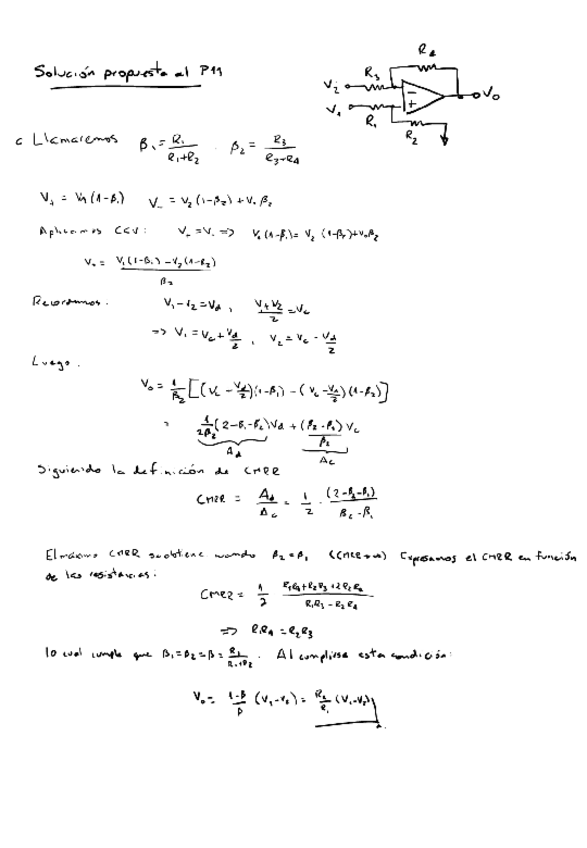 Solución propuesta al P11
R4
R3
V2
V1
R1
R2
Vo
Llamaremos β1 = R1/(R1+R2) . β2 = R3/(R3+R4)
V+ = V1 (1-β1) V- = V2 (1-β2) + Vo β2
Aplicamos CCV: V+ = V- => V1(1-β1) = V2 (1-β2)+Voβ2
Vo = (V1(1-β1) - V2(1-β2))/β2
Recordamos. V1 - V2 = Vd , (V1+V2)/2 = Vc
=> V1 = Vc + Vd/2 , V2 = Vc - Vd/2
Luego.
Vo = 1/β2 [(Vc - Vd/2)(1-β1) - (Vc - Vd/2)(1-β2)]
= 1/(2β2) (2-β1-β2)Vd + (β2-β1)/β2 Vc
Ad Ac
Siguiendo la definición de CMRR
CMRR = Ad/Ac = 1/2 · (2-β2-β1)/(β2-β1)
El máximo CMRR se obtiene cuando β2 = β1 (CMRR→∞) Expresamos el CMRR en función
de las resistencias:
CMRR = 1/2 (R1R4+R2R3+2R2R4)/(R2R3-R1R4)
=> R1R4 = R2R3
lo cual cumple que β1=β2=β= R1/(R1+R2) . Al cumplirse esta condición:
Vo = (1-β)/β (V1-V2) = R2/R1 (V1-V2)